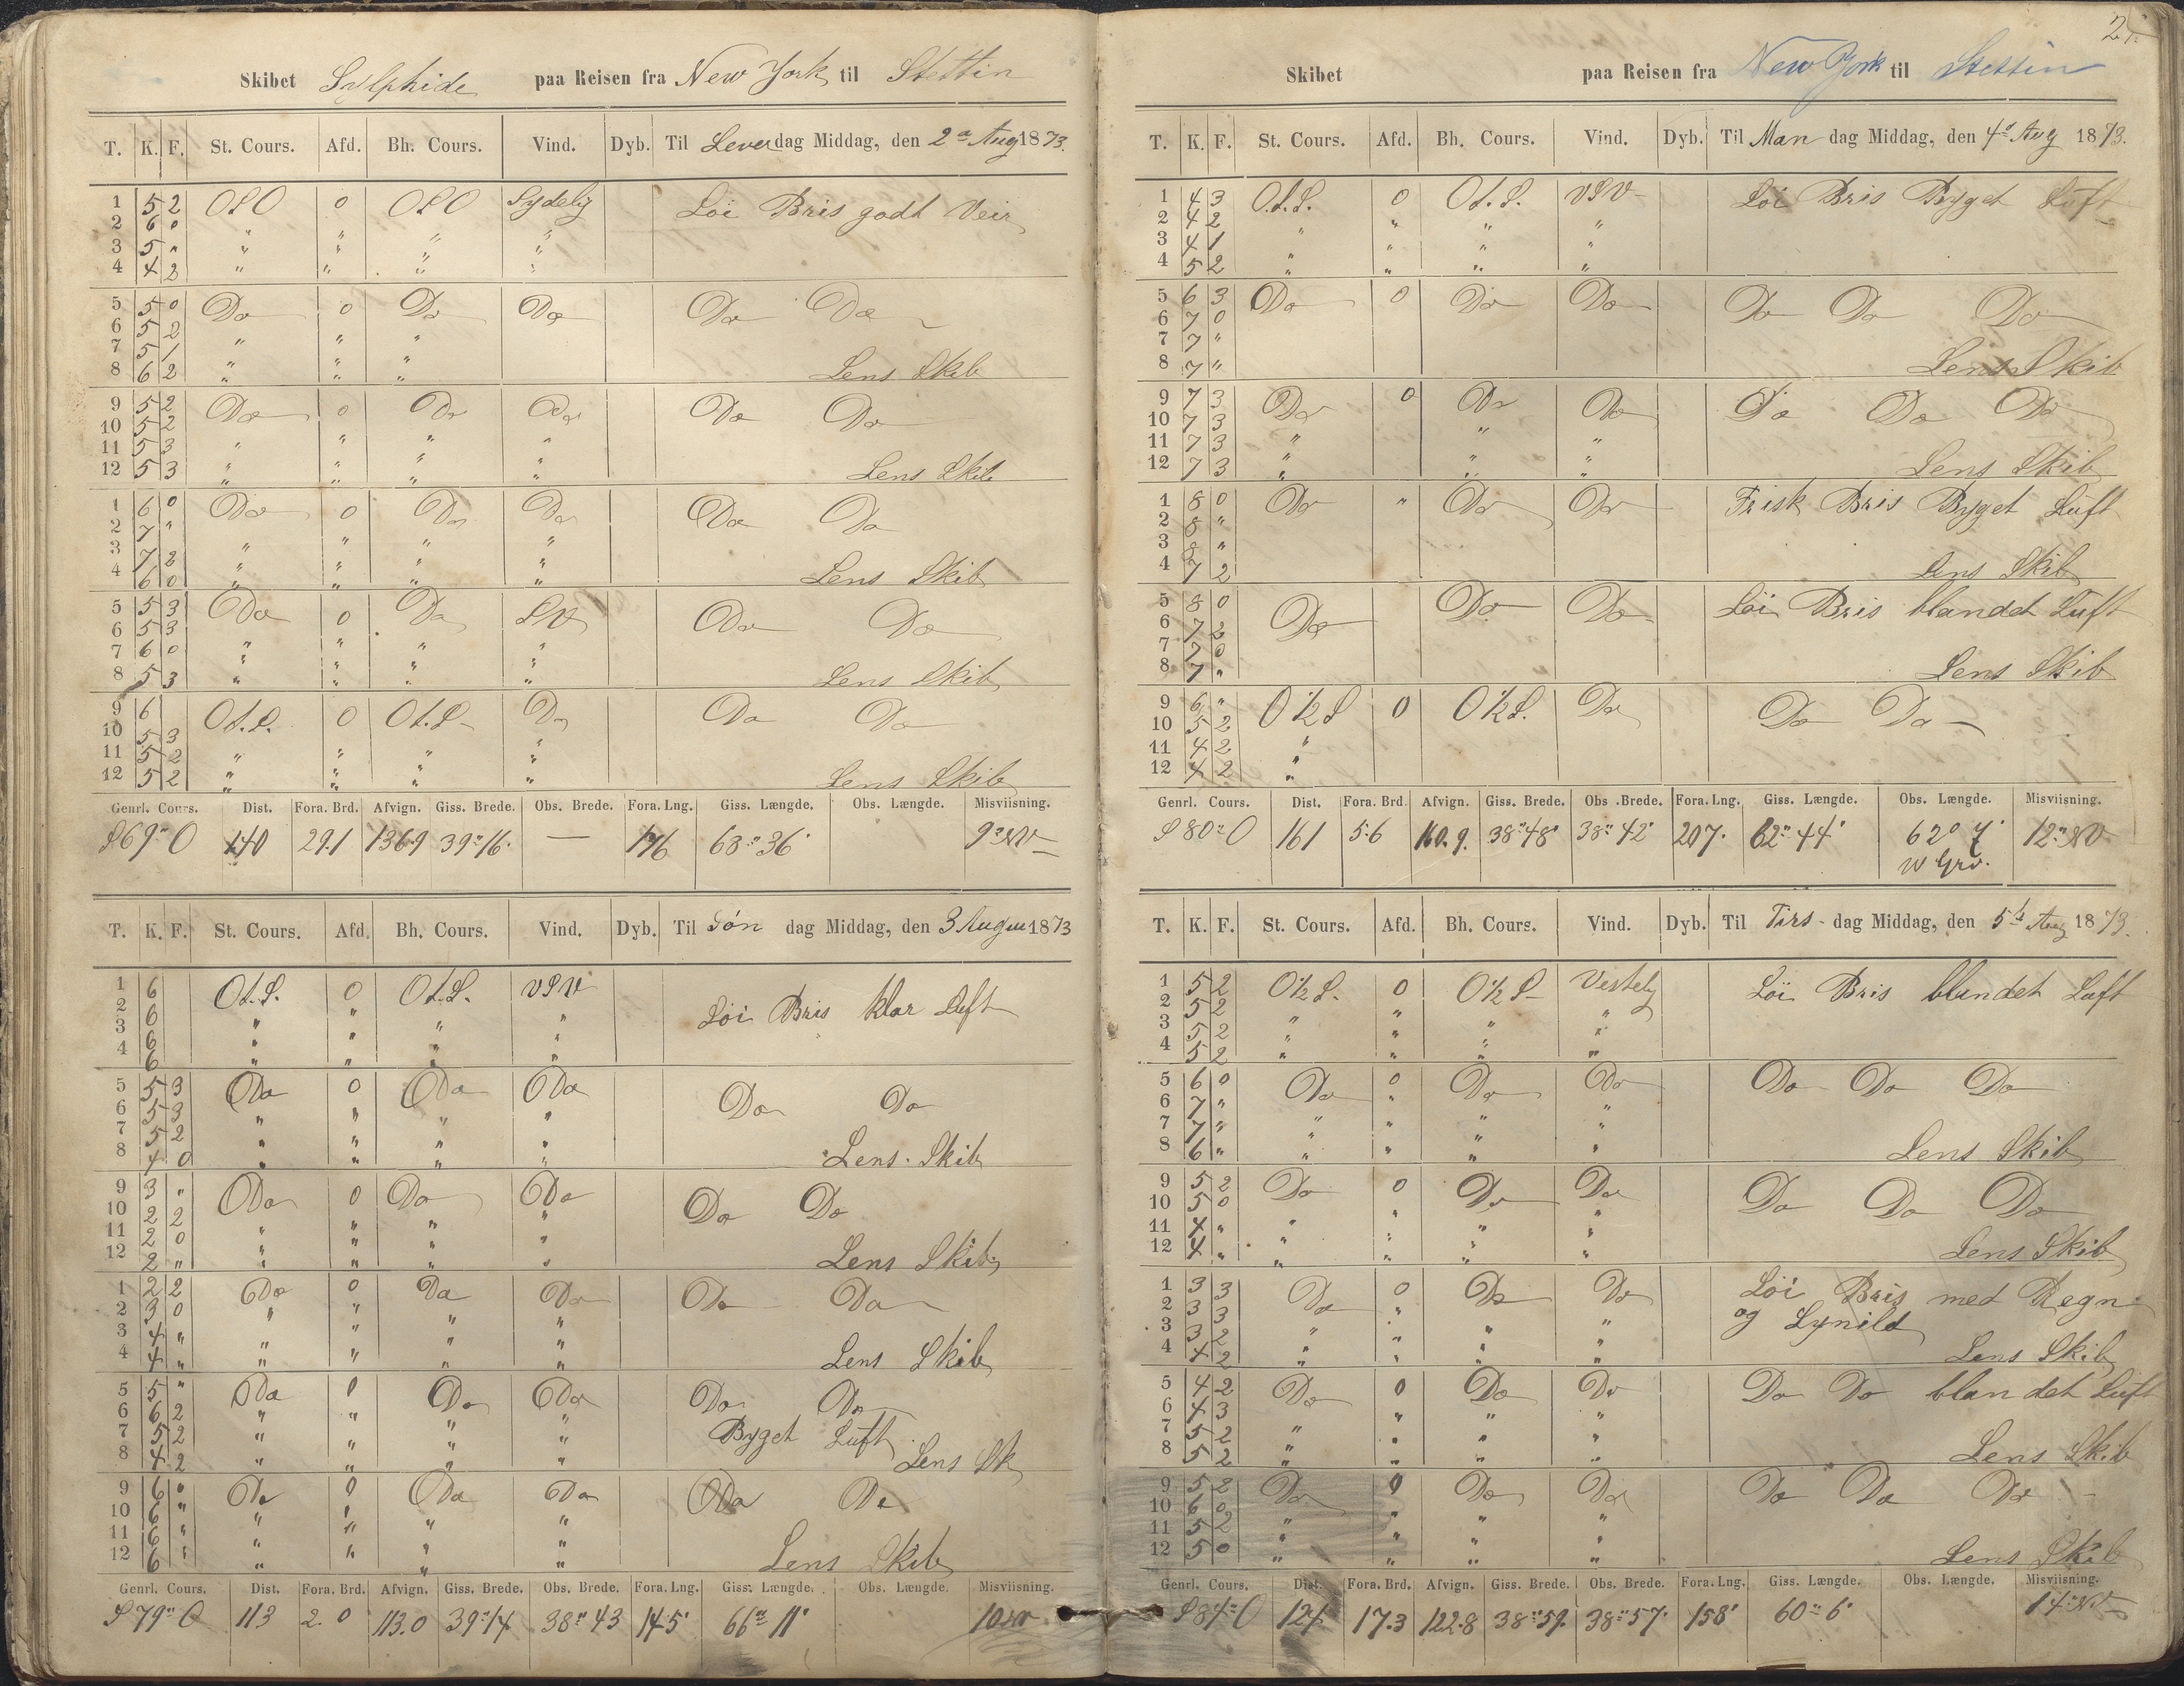 Skibet Sylphide paa Reisen fra New York til Stettin
T. K. F. St. Cours. Afd. Bh. Cours. Vind. Dyb. Til Lever dag Middag, den 2a Aug 1873.
1 5 2 OSO 0 OSO Sydelig Löi Bris godt Veir
2 6 0 " " " "
3 5 " " " " "
4 4 2 " " " "
5 5 0 Do 0 Do Do Do Do
6 5 2
7 5 1 " " "
8 6 2 " " " Lens Skib
9 5 2 Do 0 Do Do Do Do
10 5 2
11 5 3 " " " "
12 5 3 " " " " Lens Skib
1 6 0 Do 0 Do Do Do Do
2 7 "
3 7 2 " " " "
4 6 0 " " " " Lens Skib
5 5 3 Do 0 Do SV Do Do
6 5 3
7 6 0 " " " "
8 5 3 " " " " Lens Skib
9 6 Ot.S. 0 Ot.S. Do Do Do
10 5 3
11 5 2 " " " "
12 5 2 " " " " Lens Skib
Genrl. Cours. Dist. Fora. Brd. Afvign. Giss. Brede. Obs. Brede. Fora. Lng. Giss. Længde. Obs. Længde. Misviisning.
S 69° O 140 29.1 136.9 39°16' — 176 68°36' 9° NV
T. K. F. St. Cours. Afd. Bh. Cours. Vind. Dyb. Til Søn dag Middag, den 3 August 1873
1 6 Ot.S. 0 Ot.S. VSV Löi Bris klar Luft
2 6 " " " "
3 6 " " " "
4 6 " " " "
5 5 3 Do 0 Do Do Do Do
6 5 3 " " " "
7 5 2 " " " "
8 4 0 " " " " Lens Skib
9 3 " Do 0 Do Do Do Do
10 2 2 " " " "
11 2 0 " " " "
12 2 " " " " " Lens Skib
1 2 2 Do 0 Do Do Do Do
2 3 0 " " " "
3 4 "
4 4 " " " " " Lens Skib
5 5 " Do 0 Do Do Do Do
6 6 2 " " " "
7 5 2 " " " " Byget Luft
8 4 2 " " " " Lens Sk
9 6 0 Do 0 Do Do Do Do
10 6 " " " " "
11 6 " " " " "
12 6 " " " " " Lens Skib
Genrl. Cours. Dist. Fora. Brd. Afvign. Giss. Brede. Obs. Brede. Fora. Lng. Giss. Længde. Obs. Længde. Misviisning.
S 79° O 113 2.0 113.0 39°14 38°43 145' 66° 11' 10 NV
Skibet paa Reisen fra New York til Stettin
T. K. F. St. Cours. Afd. Bh. Cours. Vind. Dyb. Til Man dag Middag, den 4de Aug 1873.
1 4 3 O.t.S. 0 Ot.S. VSV Löi Bris Byget Luft
2 4 2 " " " "
3 4 1 " " " "
4 5 2 " " " "
5 6 3 Do 0 Do Do Do Do Do
6 7 0
7 7 "
8 7 " Lens Skib
9 7 3 Do 0 Do Do Do Do Do
10 7 3
11 7 3 " " "
12 7 3 " " " Lens Skib
1 8 0 Do " Do Do Frisk Bris Byget Luft
2 8 "
3 8 "
4 7 2 Lens Skib
5 8 0 Do Do Do Löi Bris blandet Luft
6 7 2
7 7 0
8 7 " Lens Skib
9 6 " O ½ S 0 O ½ S. Do Do Do
10 5 2
11 4 2 "
12 4 2 "
Genrl. Cours. Dist. Fora. Brd. Afvign. Giss. Brede. Obs. Brede. Fora. Lng. Giss. Længde. Obs. Længde. Misviisning.
S 80° O 161 5.6 160.9. 38°48' 38°42' 207' 62°44' 62° 7' 12° NV
W Grv.
T. K. F. St. Cours. Afd. Bh. Cours. Vind. Dyb. Til Tirs- dag Middag, den 5te Aug 1873.
1 5 2 O ½ S. 0 O ½ S Vestelig Löi Bris blandet Luft
2 5 2 " " " "
3 5 2 " " " "
4 5 2 " " " "
5 6 0 Do 0 Do Do Do Do Do
6 7 " " " "
7 7 " " " " "
8 6 " " " " " Lens Skib
9 5 2 Do 0 Do Do Do Do Do
10 5 0 " " " "
11 4 " " " "
12 4 " " " " " Lens Skib
1 3 3 Do 0 Do Do Löi Bris med Regn
2 3 3 " " " " og Lynild
3 3 2
4 4 2 " " " " Lens Skib
5 4 2 Do 0 Do Do Do Do blandet Luft
6 4 3 " " "
7 5 2 " " " "
8 5 2 " " " " Lens Skib
9 5 2 Do 0 Do Do Do Do Do
10 6 0 " " " "
11 5 2 " " " "
12 5 0 " " " " Lens Skib
Genrl. Cours. Dist. Fora. Brd. Afvign. Giss. Brede. Obs. Brede. Fora. Lng. Giss. Længde. Obs. Længde. Misviisning.
S 84° O 124 17.3 122.8 38°59' 38°57' 158' 60° 6' 14° NV